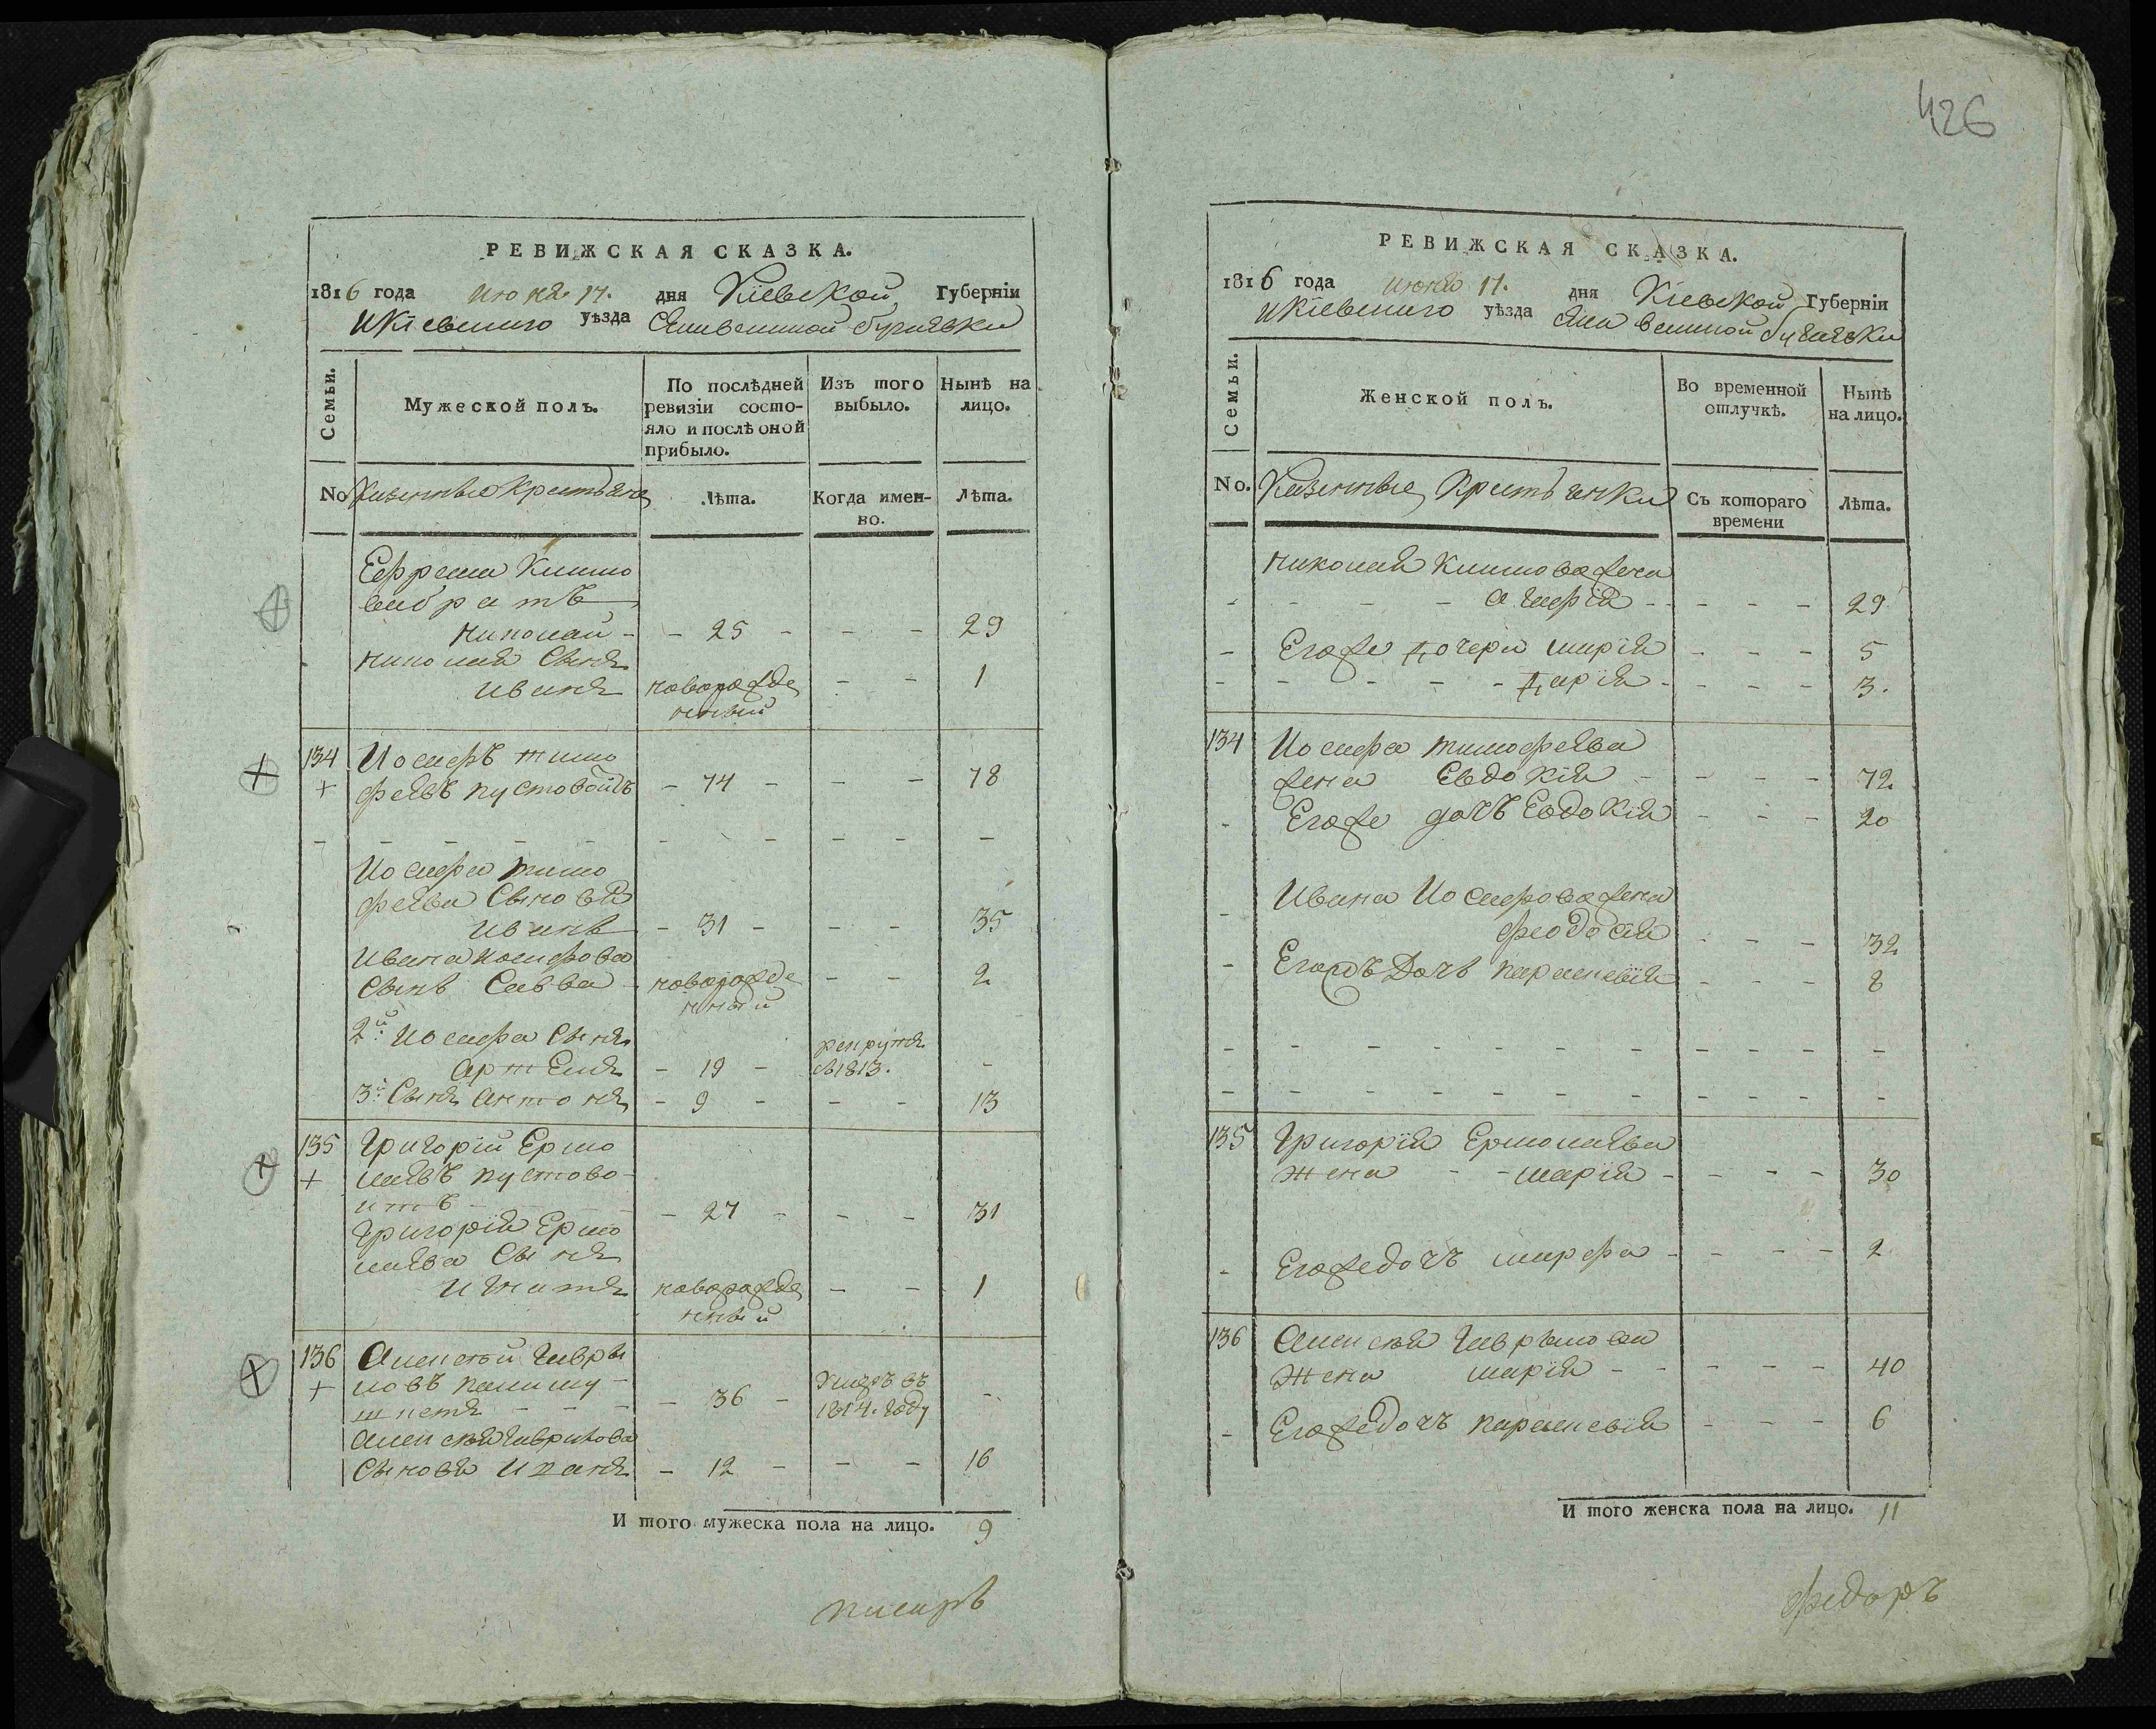 426
РЕВИЖСКАЯ СКАЗКА.
1816 года июня 17. дня Кіевской Губерніи
и Кіевского уѣзда
Семьи.
Мужеской полъ.
По послѣдней ревизіи состояло и послѣ оной прибыло.
Изъ того выбыло.
Нынѣ на лицо.
No Казенные крестьяне
Лѣта.
Когда именно.
Лѣта.
Ефрема Климо
ва братъ
Николай - - 25 - - - 29
Николая Сынъ
Иванъ новорожде - - 1
нный
134 Иосифъ Тимо
+ фѣевъ Пустовойтъ - 74 - - - 78
- - - - - - - - - -
Иосифа Тимо
фѣева Сыновья
Иванъ - 31 - - - 35
Ивана Иосифова
Сынъ Савва - новорожде - - 2
нный
2й Иосифа Сынъ рекрутъ
Артемъ - 19 - в 1813. -
3й Сынъ Антонъ - 9 - - - 13
135 Григорій Ермо
+ лаевъ Пустово-
итъ - - 27 - - - 31
Григорія Ермо
лаева Сынъ
Игнатъ новорожде - - 1
нный
136 Алексѣй Гаври
+ ловъ - 36 - умеръ въ 1814. году -
Алексѣя Гаврилова
Сыновья Иванъ - 12 - - - 16
И того мужеска пола на лицо. 9
писаръ
РЕВИЖСКАЯ СКАЗКА.
1816 года июня 17. дня Кіевской Губерніи
и Кіевского уѣзда
Семьи.
Женской полъ.
Во временной отлучкѣ.
Нынѣ на лицо.
No. Казенные Крестьянки
Съ котораго времени
Лѣта.
Николая Климова жена
- - - - - - - 29
- Егоже дочери Марія - - - 5
- - - - - Дарія - - - - 3.
134 Иосифа Тимофѣева
жена Евдокія - - - - 72
- Егоже дочъ Евдокія - - - 20
- Ивана Иосифова жена
Феодосія - - - 32
- Егожъ Дочъ Параскевія - - - 8
- - - - - - - - - - - -
- - - - - - - - - - - -
135 Григорія Ермолаева
жена - - Марія - - - - 30
- Егоже дочъ Марфа - - - - 2
136 Алексѣя Гаврилова
жена Марія - - - - - 40
- Егоже дочъ Параскевія - - - 6
И того женска пола на лицо. 11
Федоръ